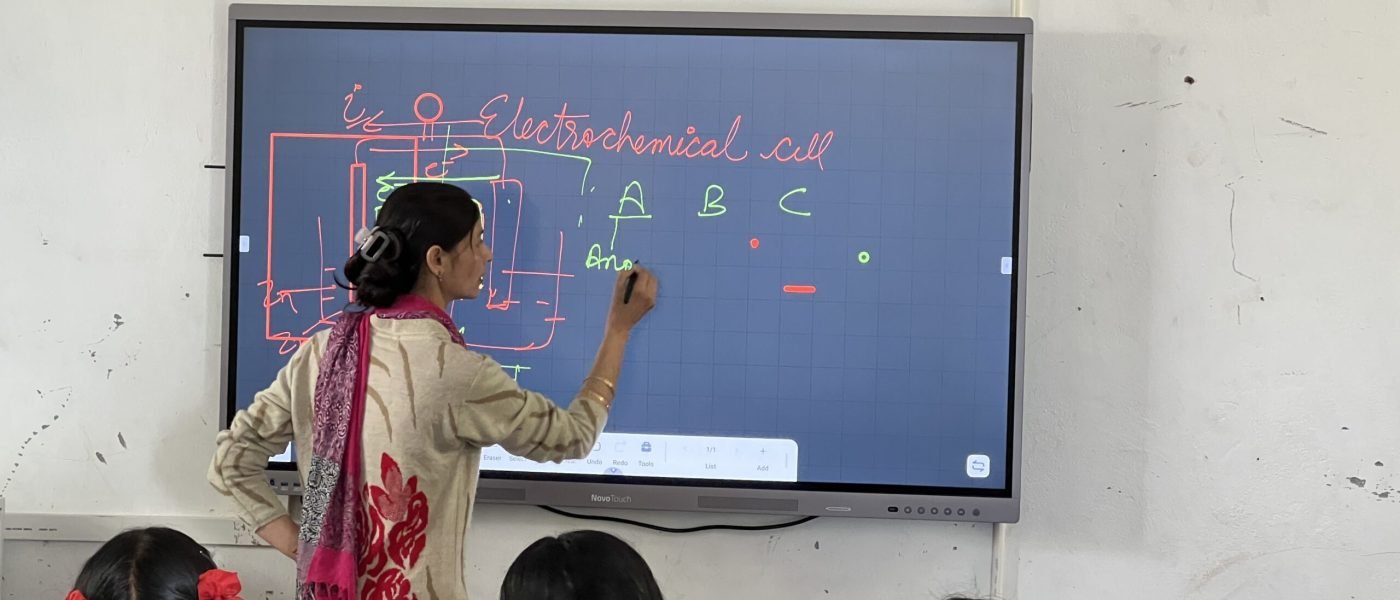 i
Electrochemical cell
e⁻
A B C
Ano
Zn
Eraser
Undo Redo Tools
1/1
List
+
Add
NovoTouch